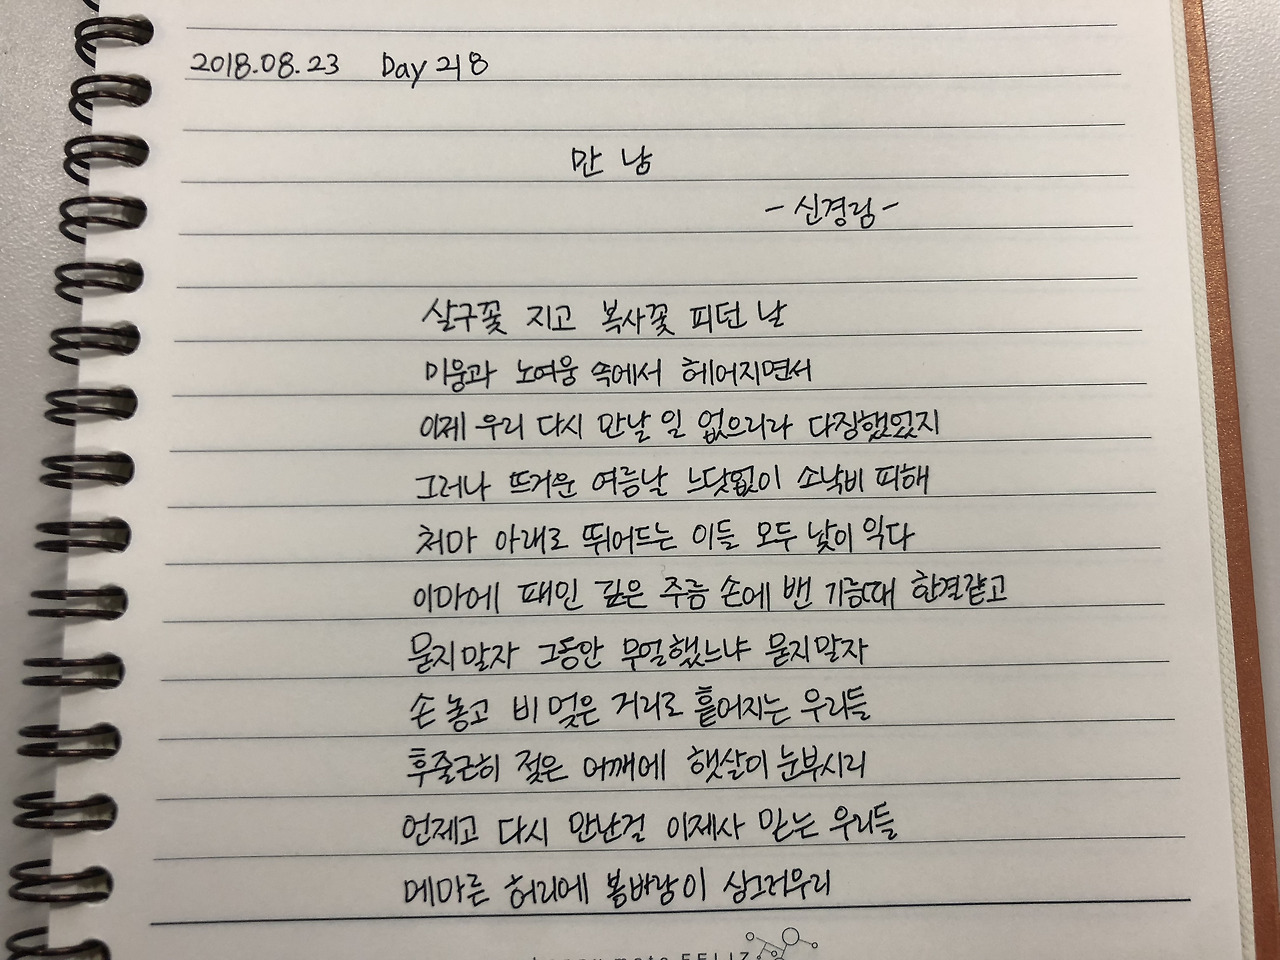 2018.08.23 Day 218
만남
- 신경림 -
살구꽃 지고 복사꽃 피던 날
미움과 노여움 속에서 헤어지면서
이제 우리 다시 만날 일 없으리라 다짐했었지
그러나 뜨거운 여름날 느닷없이 소낙비 피해
처마 아래로 뛰어드는 이들 모두 낯이 익다
이마에 패인 깊은 주름 손에 밴 기름때 한결같고
묻지말자 그동안 무얼했느냐 묻지말자
손 놓고 비 멎은 거리로 흩어지는 우리들
후줄근히 젖은 어깨에 햇살이 눈부시리
언제고 다시 만난걸 이제사 믿는 우리들
메마른 허리에 봄바람이 싱그러우리